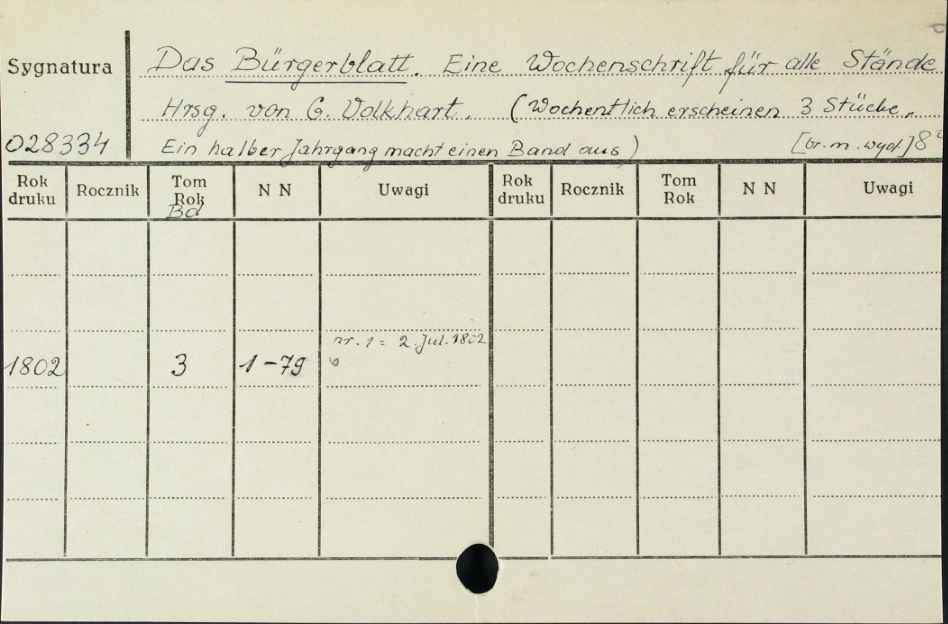 Sygnatura
028334
Das Bürgerblatt. Eine Wochenschrift für alle Stände.
Hrsg. von G. Volkhart. (Wochentlich erscheinen 3 Stücke.
Ein halber Jahrgang macht einen Band aus) [br. m. wyd.] 8°
Rok druku Rocznik Tom Rok Bd N N Uwagi Rok druku Rocznik Tom Rok N N Uwagi
nr. 1 = 2. Jul. 1802
1802 3 1-79